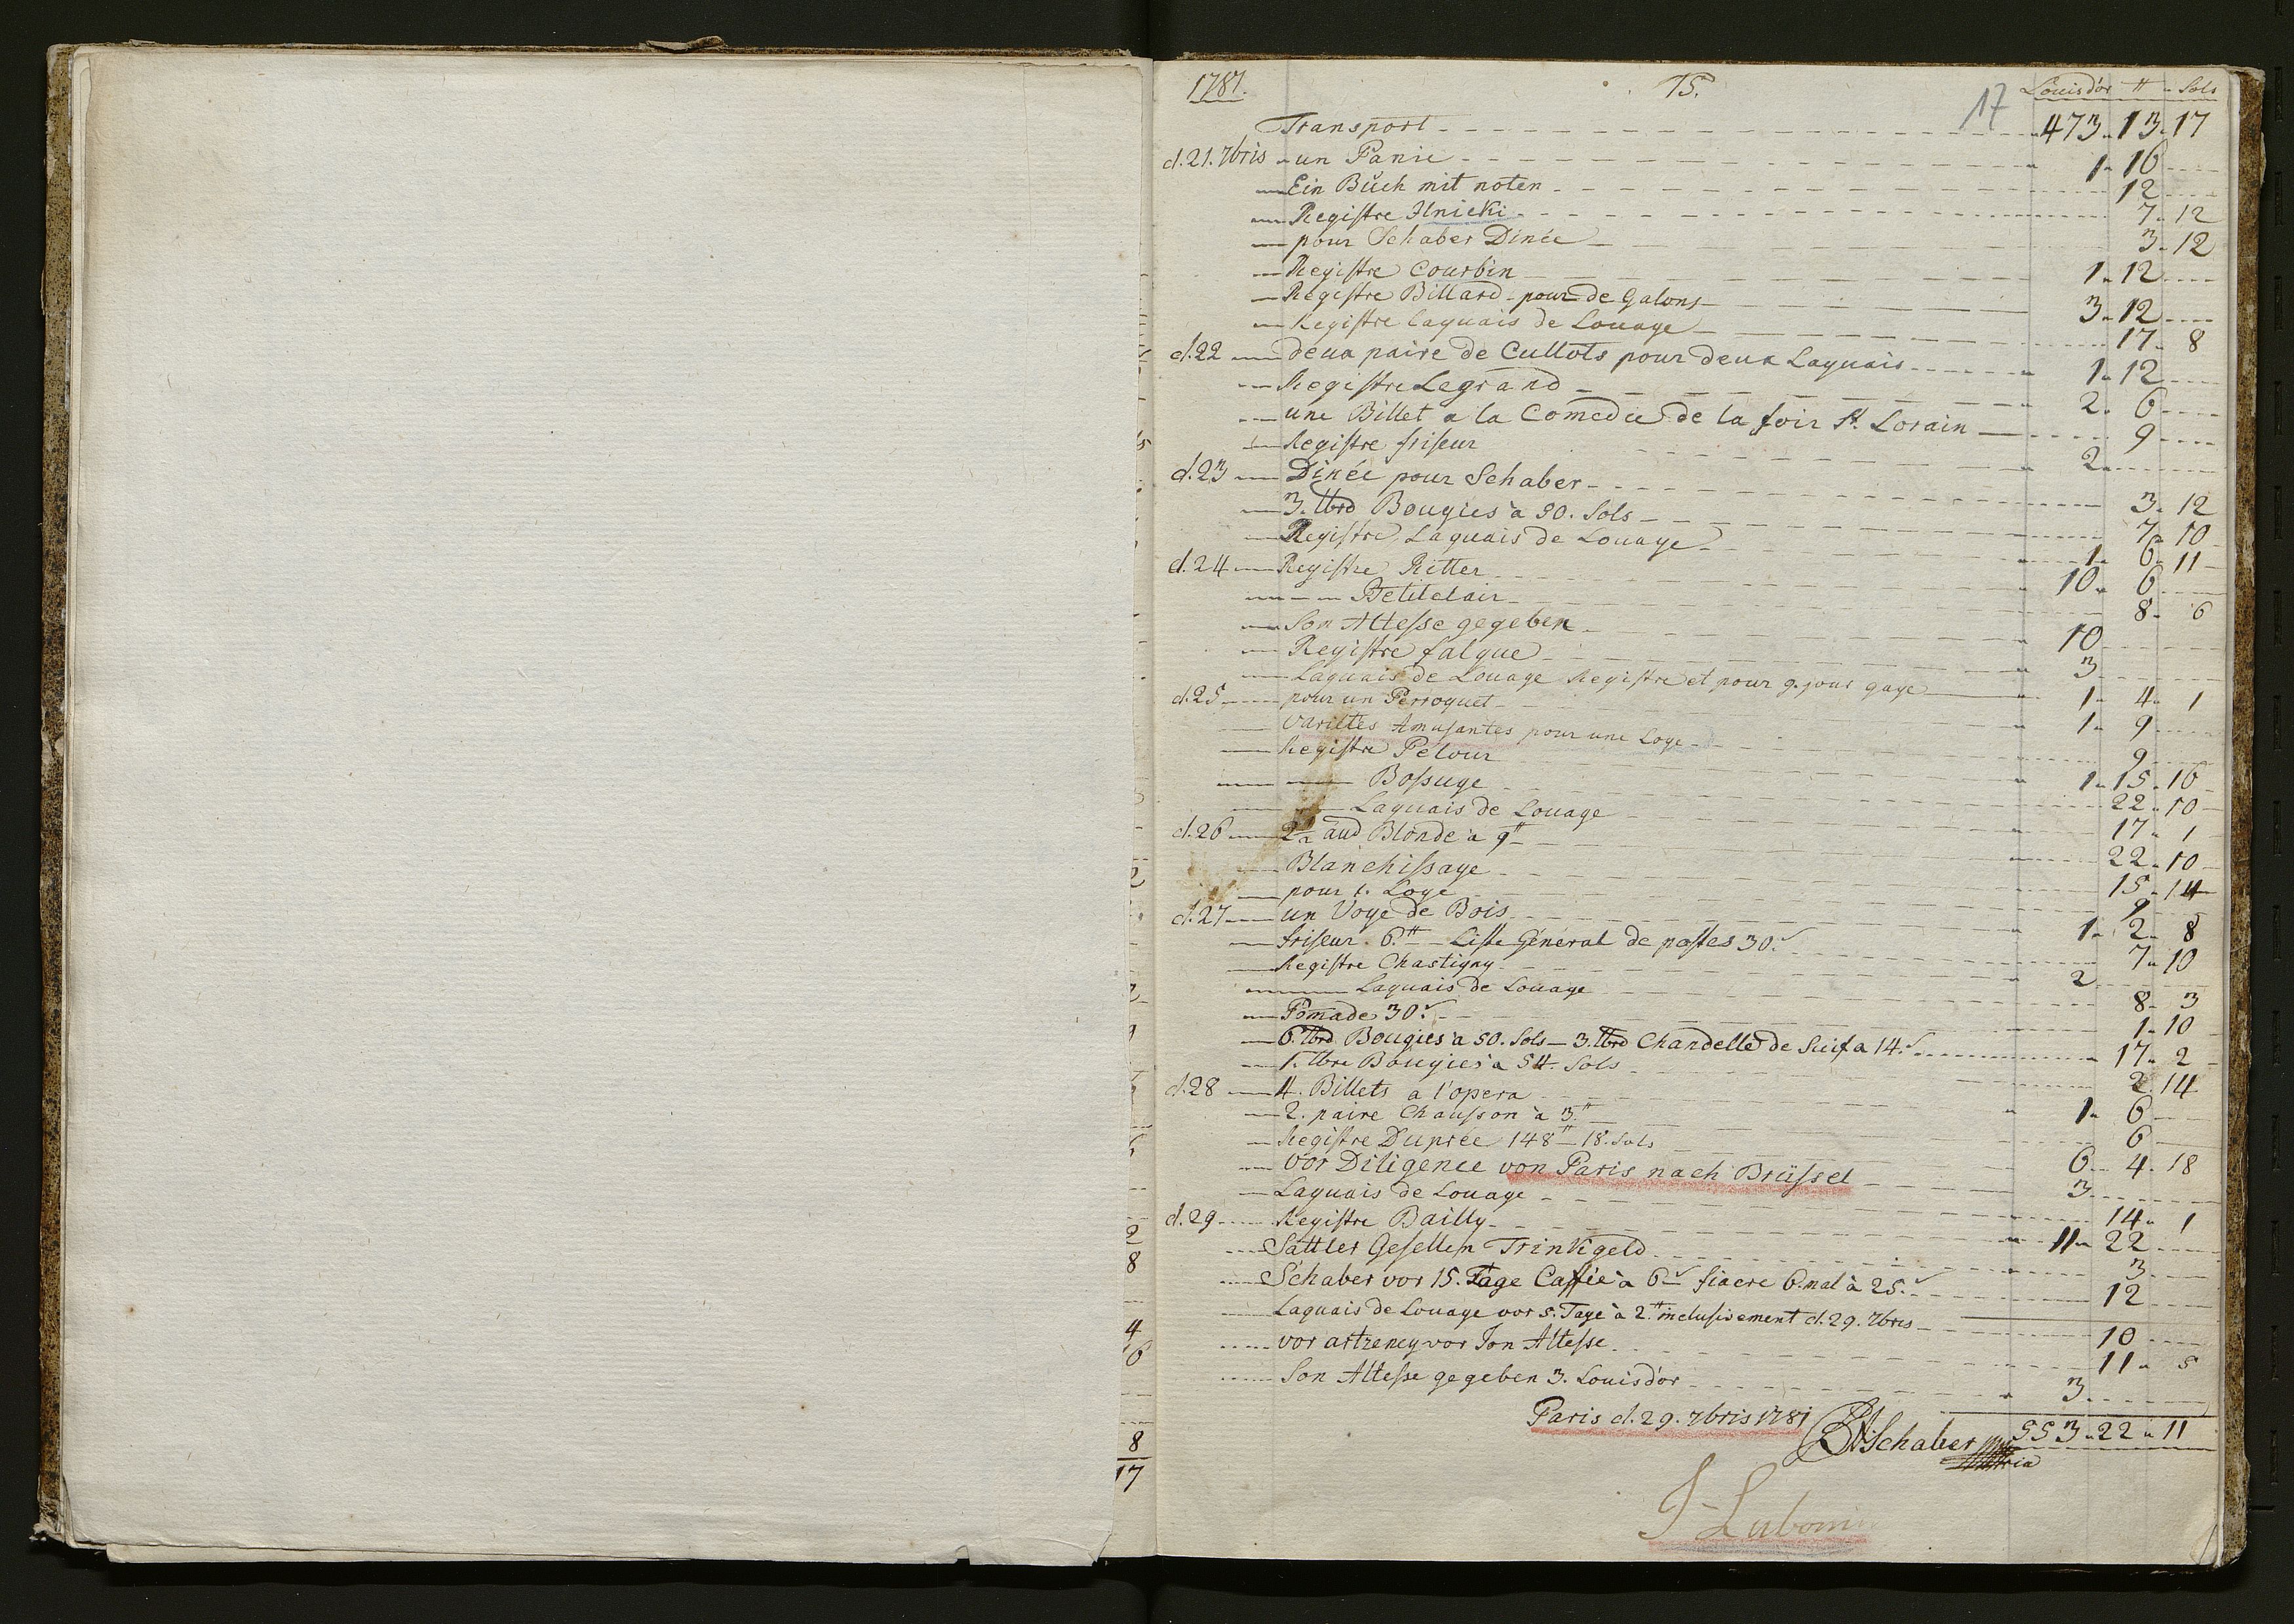 1781. 15. 17 Louisdór ₶ Sols
Transport 473 13 17
d. 21. 7bris un Panie 1 16
Ein Buch mit noten 12
Registre Ilnicki 7 12
pour Schaber Dinée 3 12
Registre Courbin 1 12
Registre Billard pour de Galons 3 12
Registre laquais de Louage 17 8
d. 22 deux paire de Cullots pour deux Laquais 1 12
Registre Legrand 2 6
une Billet a la Comedie de la foir St. Lorain 9
Registre friseur 2
d. 23 Dinée pour Schaber 3 12
3. tbrd Bougies à 50. Sols 7 10
Registre Laquais de Louage 1 6 11
d. 24 Registre Ritter 10 6
Petitclair 8 6
Son Altesse gegeben 10
Registre falque 3
Laquais de Louage Registre et pour 9. jour gage 1 4 1
d. 25 pour un Perroquet 1 9
Varietes Amusantes pour une Loge 9
Registre Petour 1 15 16
Bossuge 22 10
Laquais de Louage 17 1
d. 26 2½ aud Blonde à 9₶ 22 10
Blanchissage 15 14
pour 1. Loge 9
d. 27 un Voye de Bois 1 2 8
friseur. 6.₶ Liste Géneral de postes 30.s 7 10
Registre Chastigny 2
Laquais de Louage 8 3
Pomade 30.s 1 10
6. tbrd Bougies a 50. Sols 3. tbrd Chandelle de Suif a 14.s 17 2
1. tbre Bougies à 54. Sols 2 14
d. 28 4. Billets a l'opera 1 6
2. paire Chausson à 3.₶ 6
Registre Duprée 148₶ 18. Sols 6 4 18
Vor Diligence von Paris nach Brüssel 3
Laquais de Louage 14 1
d. 29 Registre Bailly 11 22
Sattler Gesellen Trinkgeld 3
Schaber vor 15. Tage Caffée à 6s fiacre 6. mal à 25.s 12
Laquais de Louage vor 5. Tage à 2.₶ inclusivement d. 29. 7bris 10
vor artzeney vor Son Altesse 11 5
Son Altesse gegeben 3. Louisdór 3
Paris d. 29. 7bris 1781 Schaber 553 22 11
J Lubomir